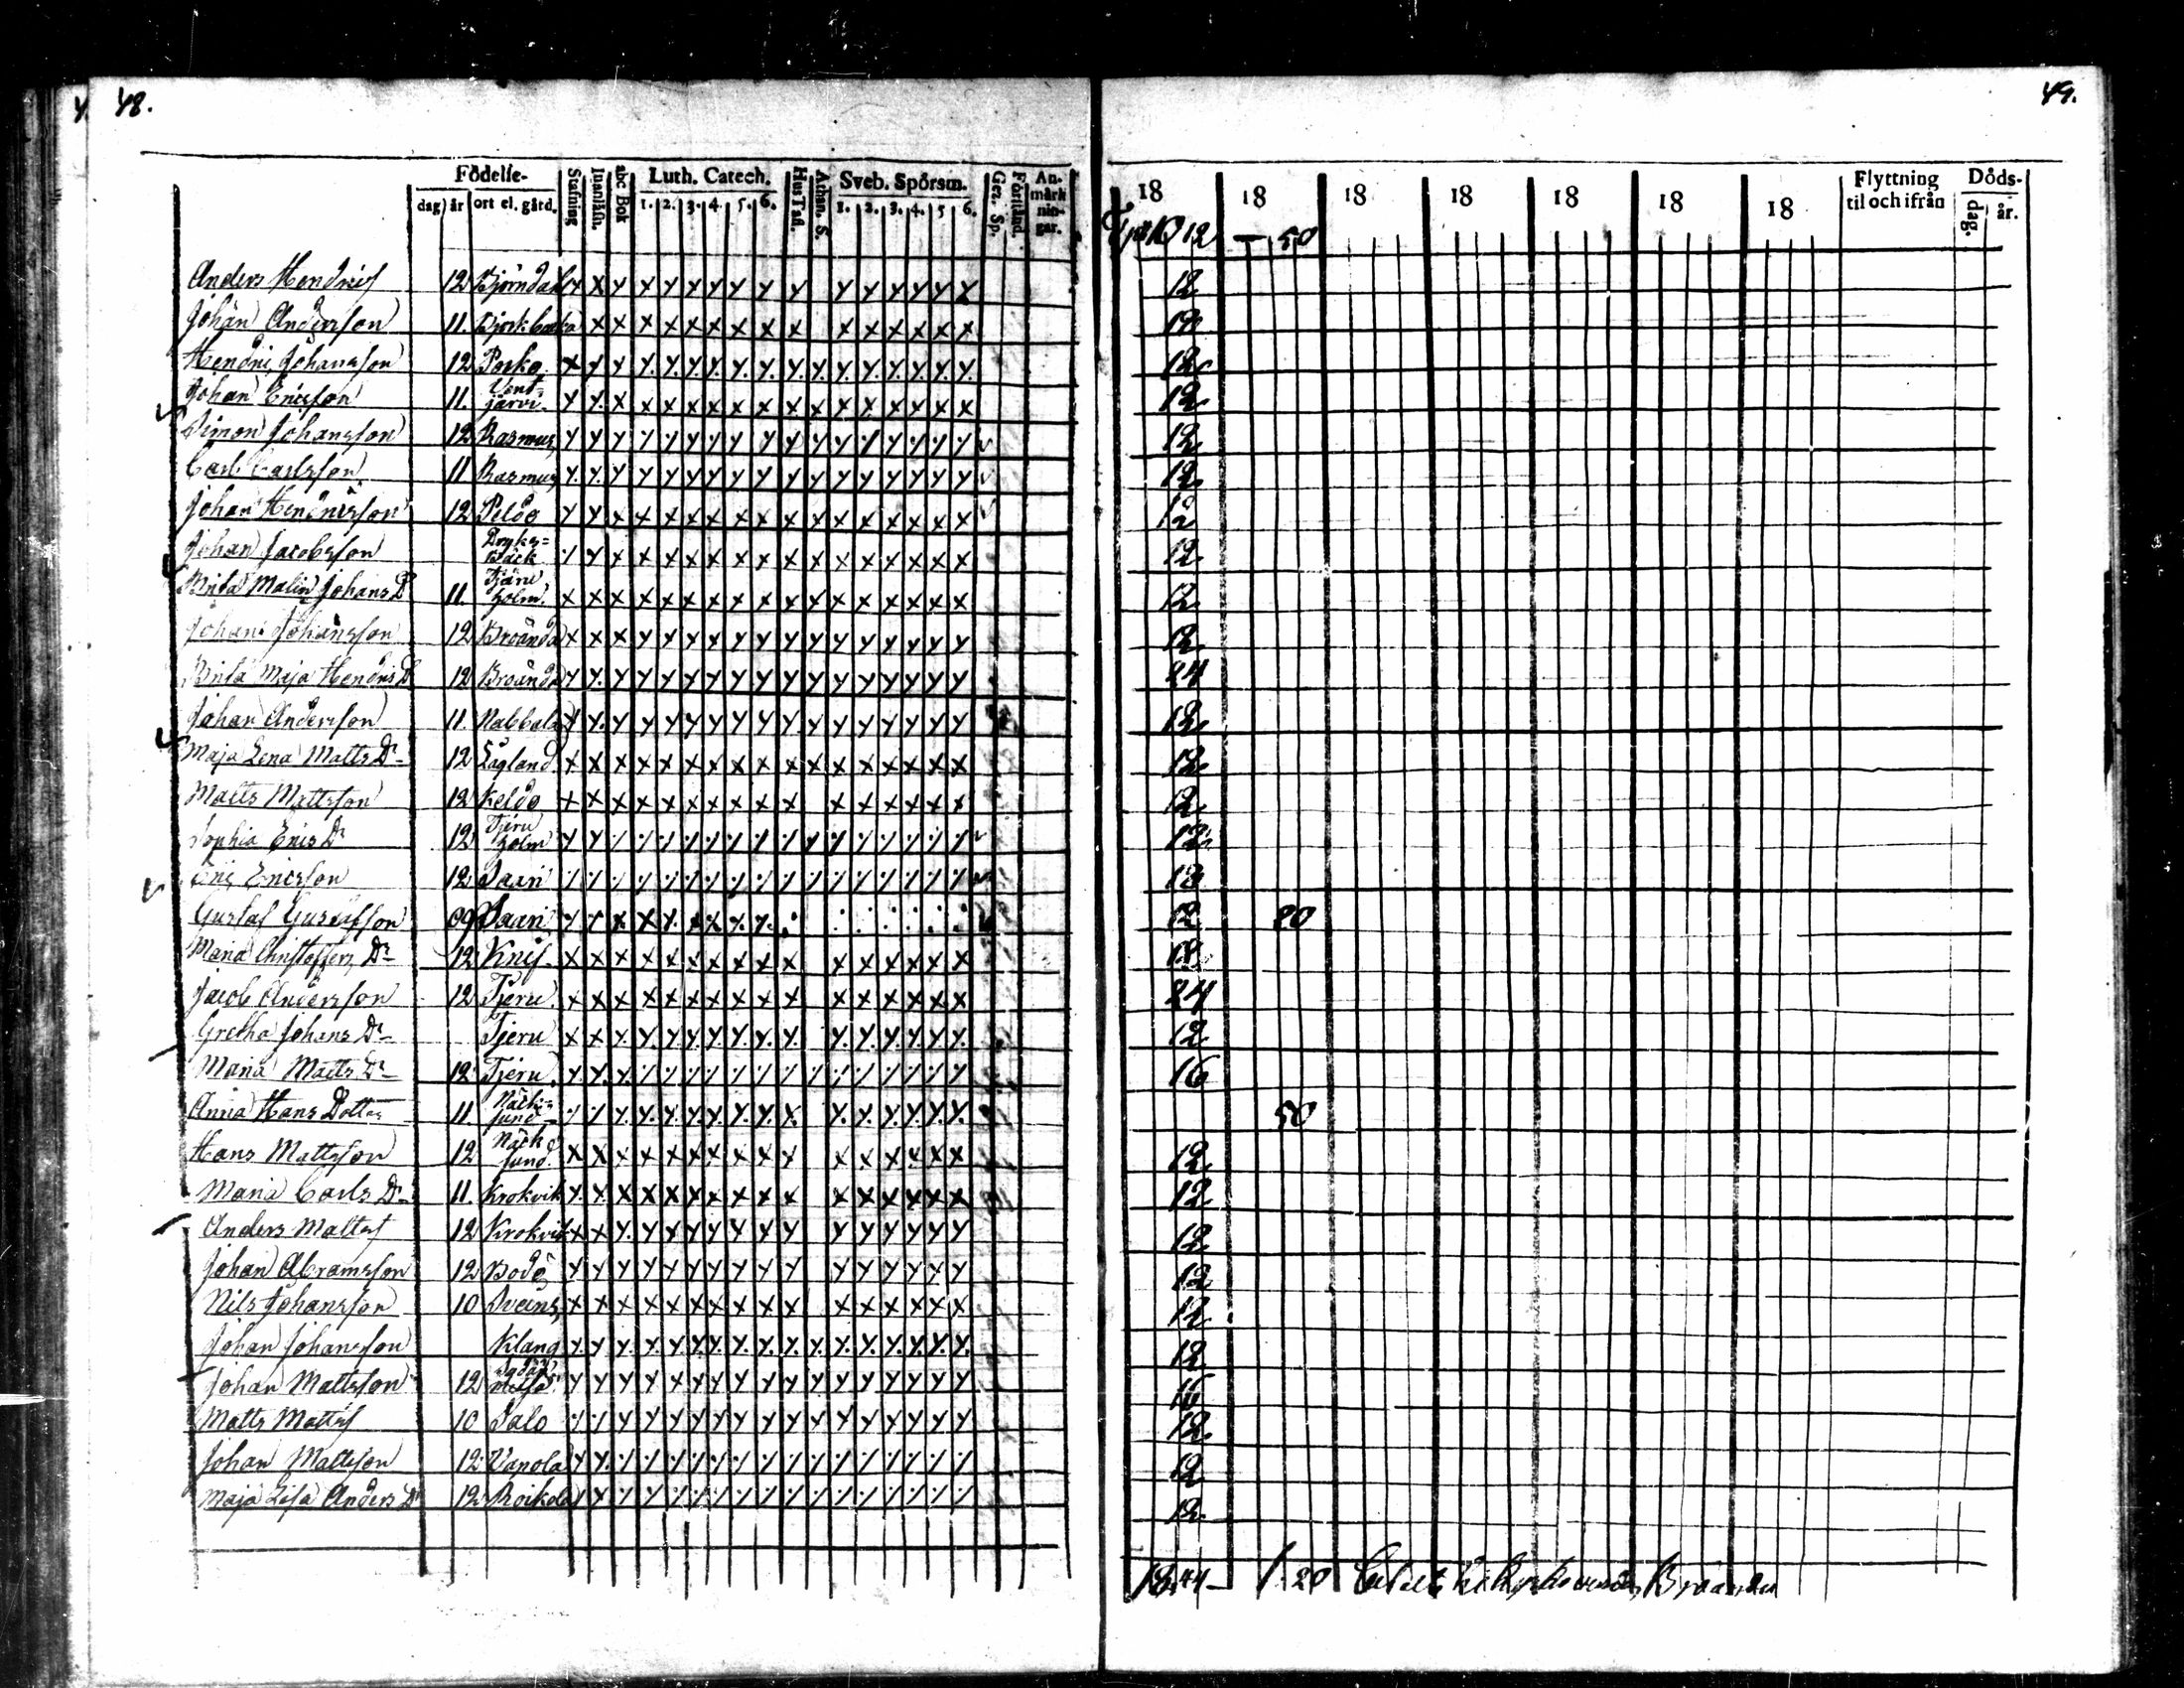 48.
49.
Födelse-
dag år ort el. gård.
Stafning
Inanläsn.
abc Bok
Luth. Catech.
1. 2. 3. 4. 5. 6.
Hus Tafl.
Athan. S.
Sveb. Spörsm.
1. 2. 3. 4. 5 6.
Gez. Sp.
Förstånd.
Anmärkningar.
18 18 18 18 18 18 18
Flyttning til och ifrån
Döds-
dag. år.
12 — 50
Anders Hendrics 12 Björndal 12
Johan Andersson 11. Björkbacka 12
Hendric Johansson 12 Porko 12
Johan Ericsson 11. Ventjärvi 12
Simon Johansson 12 Rasmus 12
Carl Carlsson 11 Rasmus 12
Johan Hendricsson 12 Peldo 12
Johan Jacobsson Dryksbäck 12
Brita Malin Johans Dr 11. holm 12
Johan Johansson 12 Broända 12
Brita Maja Hendrics Dr 12 Broända 24
Johan Andersson 11. Nabbala 12
Maja Lena Matts Dr 12 Lågland 12
Matts Mattsson 12 Keldo 12
Sophia Erics Dr 12 Tjeru holm 12
Eric Ericsson 12 Saari 12
Gustaf Gustafsson 09 Saari 12 20
Maria Christoffers Dr 12 Knif 18
Jacob Andersson 12 Tjeru 24
Gretha Johans Dr Tjeru 12
Maria Matts Dr 12 Tjeru 16
Anna Hans Dotter 11. Näcksund 50
Hans Mattsson 12 Näcksund 12
Maria Carls Dr 11. Krokvik 12
Anders Mattss 12 Krokvik 12
Johan Abramsson 12 Bodö 12
Nils Johansson 10 Sveins 12
Johan Johansson Klang 12
Johan Mattsson 12 16
Matts Mattss 10 Salo 12
Johan Mattsson 12 Vanola 12
Maja Lisa Anders Dr 12 Roikola 12
18,44 — 1. 20